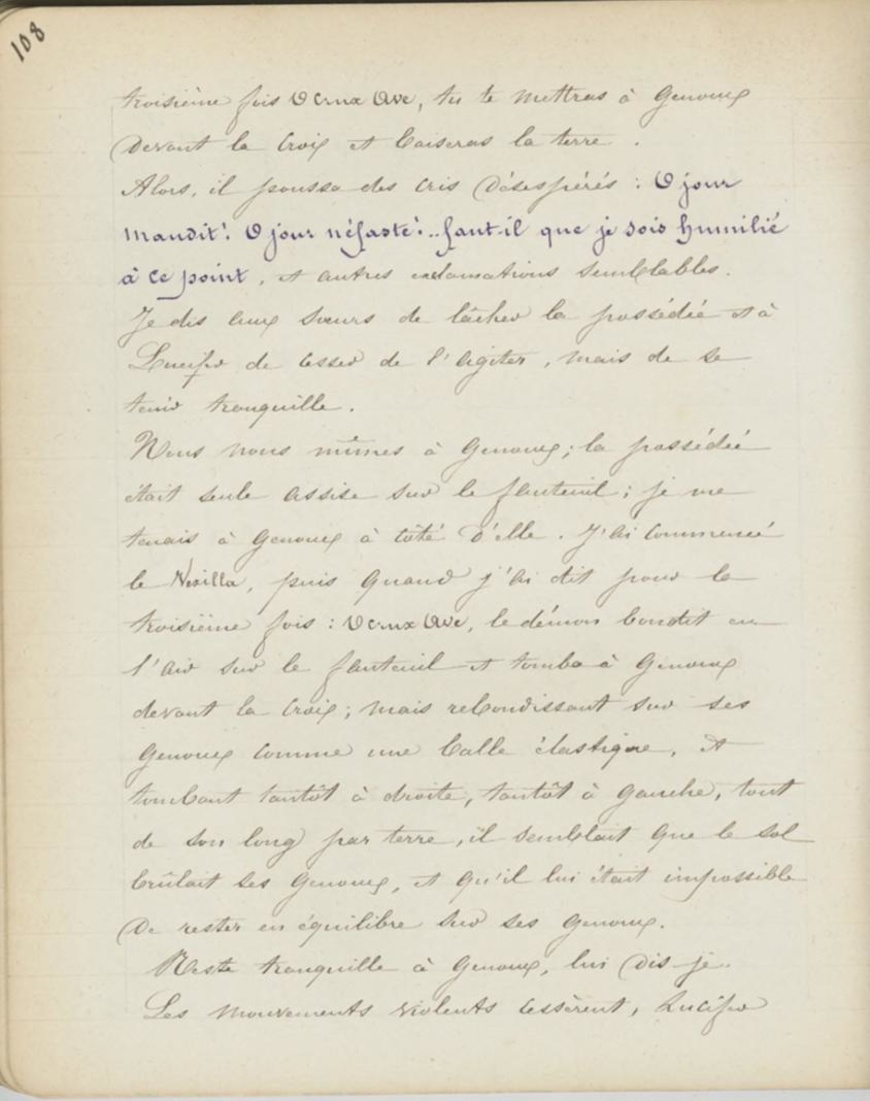 108
troisième fois O Crux Ave, tu te mettras à Genoux
Devant la Croix et baiseras la terre .
Alors, il poussa des cris Désespérés : O jour
maudit! O jour néfaste!.. faut-il que je sois humilié
à ce point, et autres exclamations semblables.
Je dis aux sœurs de lâcher la possédée et à
Lucifer de cesser de l'agiter, mais de se
tenir tranquille.
Nous nous mîmes à Genoux; la possédée
était seule assise sur le fauteuil; je me
tenais à Genoux à côté D'elle. J'ai commencé
le Vexilla, puis quand j'ai dit pour la
troisième fois : O crux Ave, le démon bondit en
l'air sur le fauteuil et tomba à Genoux
devant la Croix; mais rebondissant sur ses
Genoux comme une balle élastique, et
tombant tantôt à droite, tantôt à Gauche, tout
de son long par terre, il semblait que le sol
brûlait ses Genoux, et qu'il lui était impossible
De rester en équilibre sur ses Genoux.
Reste tranquille à Genoux, lui Dis-je.
Les mouvements violents cessèrent, Lucifer